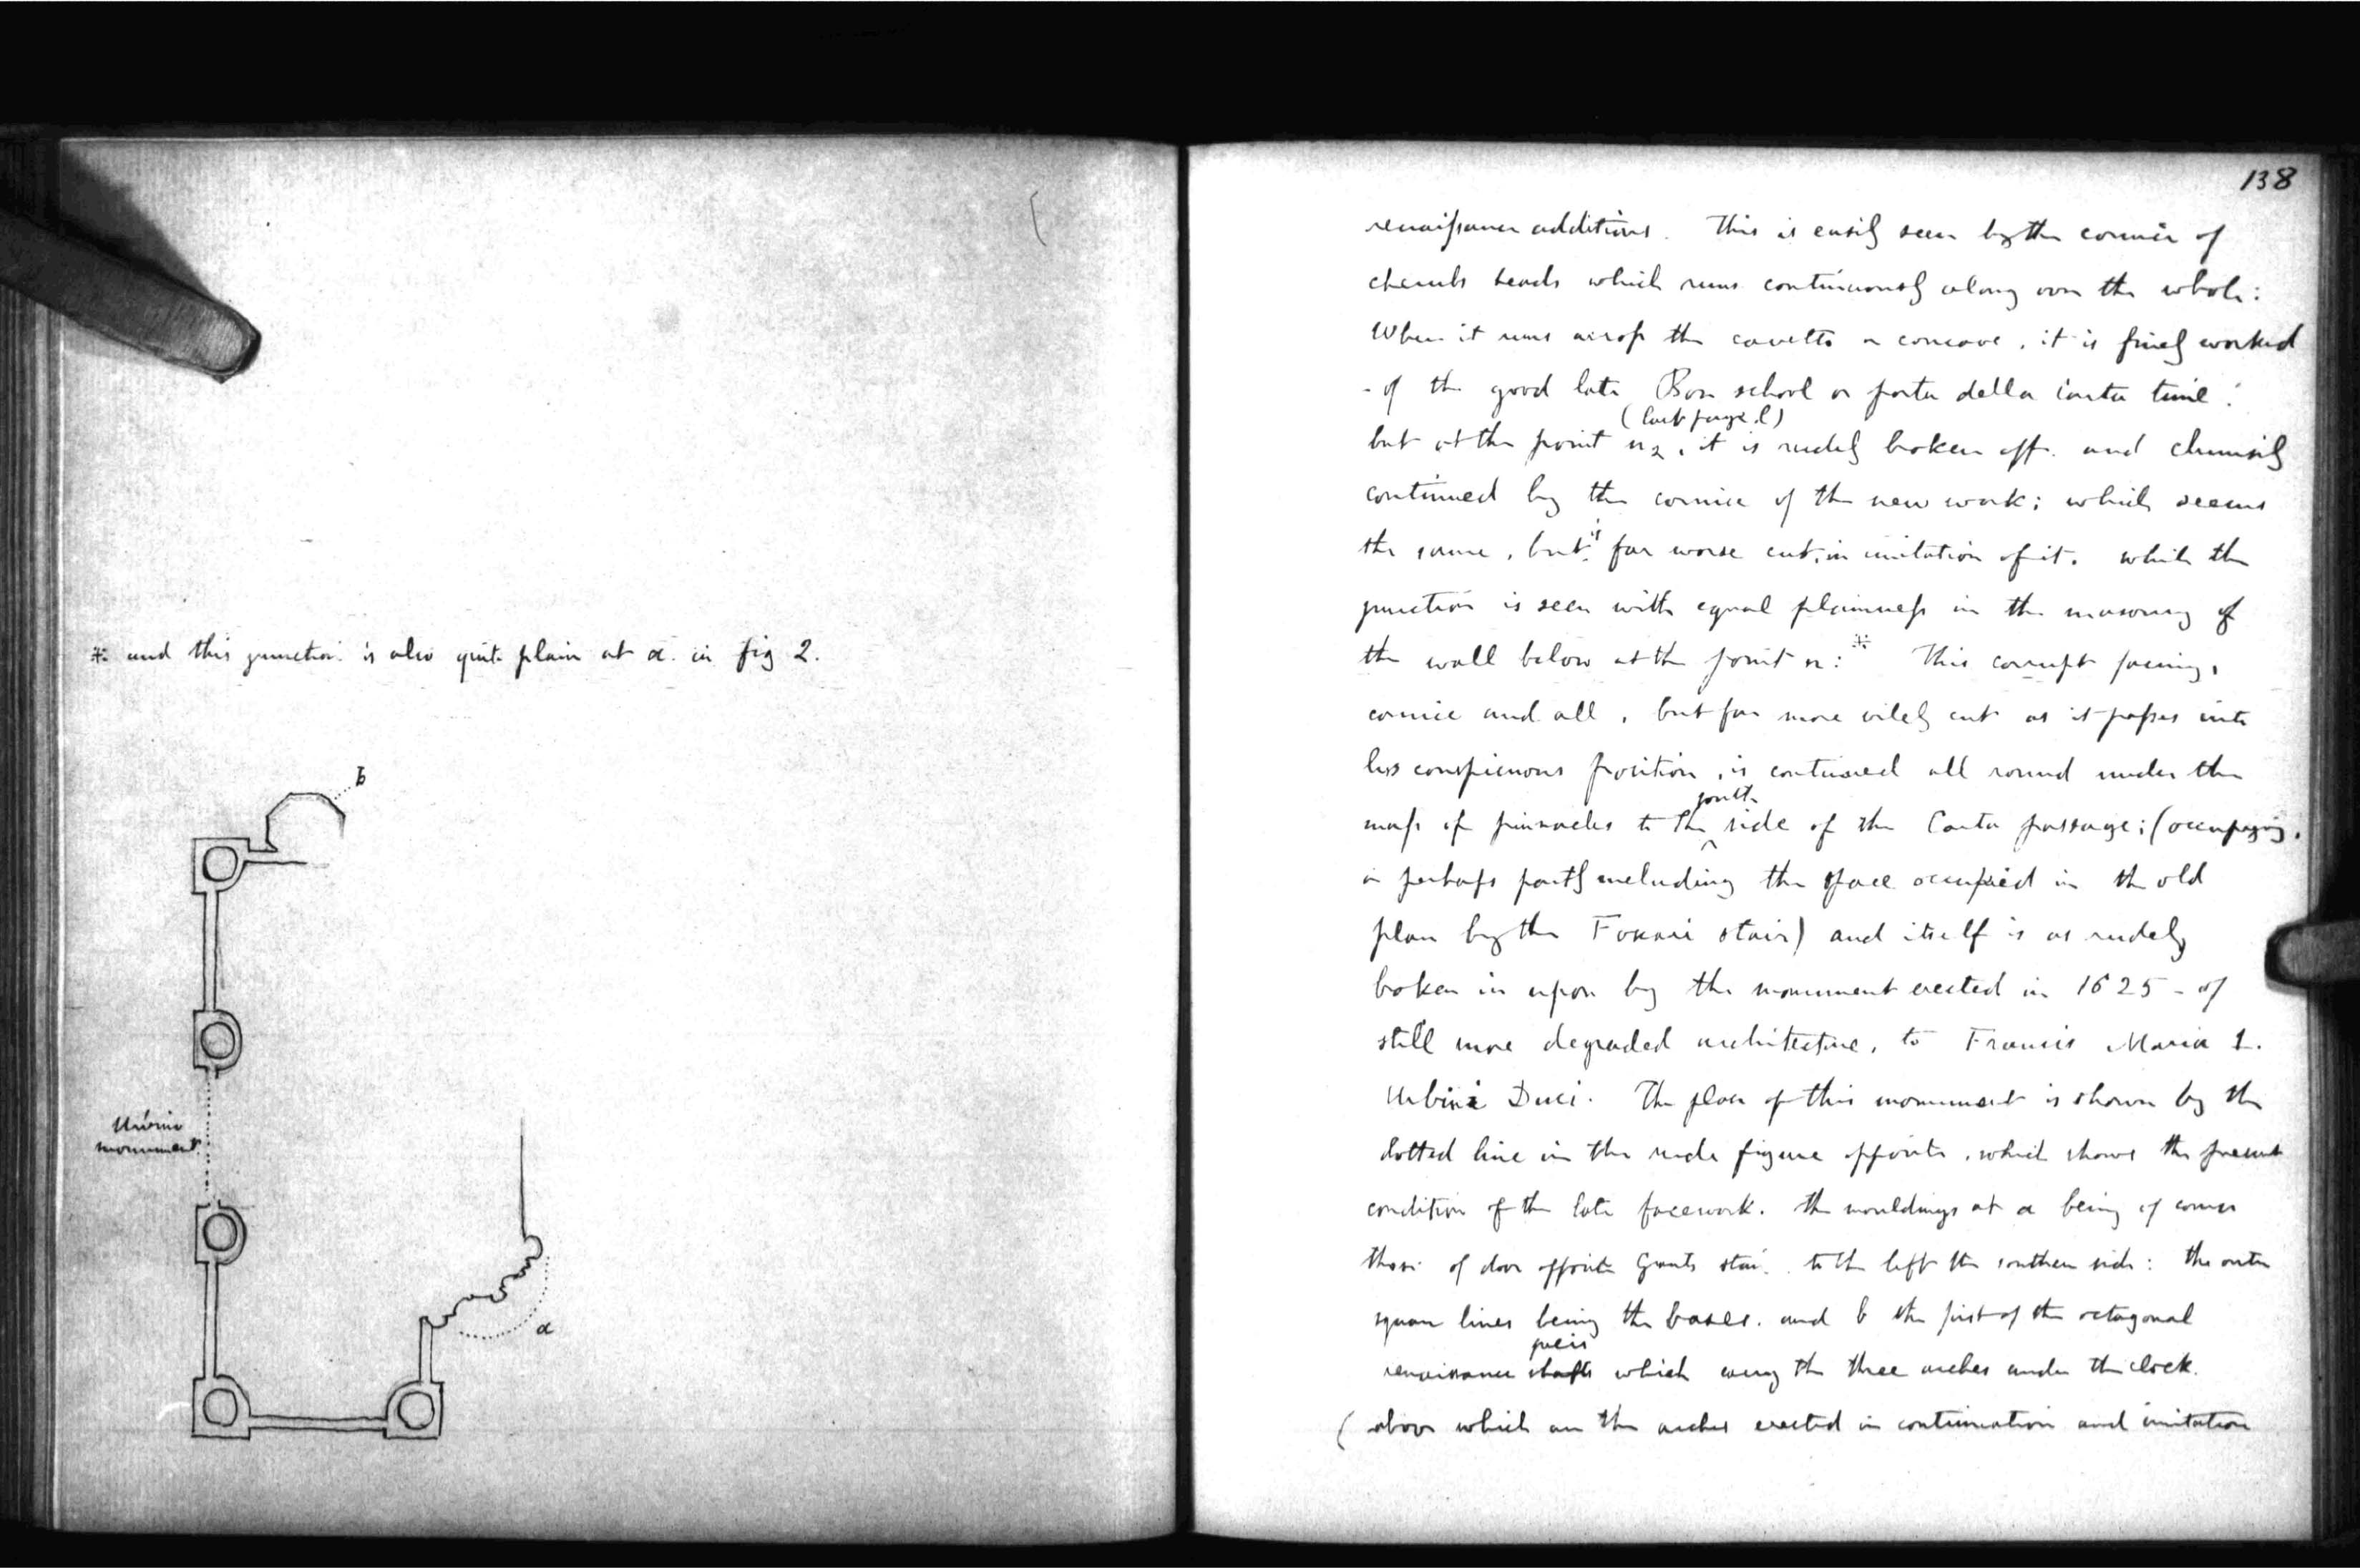 * and this junction is also quite plain at a. in fig 2.
b
Urbino
monument
a
138
renaissance additions. This is easily seen by the cornice of
cherubs heads which runs continuously along over the whole:
When it runs across the cavetto or concave, it is finely worked
- of the good late Bon school or porta della Carta time:
(last page. l)
but at the point n2, it is rudely broken off. and clumsily
continued by the cornice of the new work; which seems
the same, but is far worse cut, in imitation of it. while the
junction is seen with equal plainness in the masonry of
the wall below at the point n: * This corrupt facing,
cornice and all, but far more vilely cut as it passes into
less conspicuous position, is continued all round under the
mass of pinnacles to the south side of the Carta passage; (occupying,
or perhaps partly including the space occupied in the old
plan by the Foscari stair) and itself is as rudely
broken in upon by the monument erected in 1625 - of
still more degraded architecture, to Francis Maria 1.
Urbini Duci. The plan of this monument is shown by the
dotted line in the rude figure opposite, which shows the present
condition of the late facework. the mouldings at a being of course
those of door opposite Giants stair. to the left the southern side: the outer
square lines being the bases. and b the first of the octagonal
piers
renaissance shafts which carry the three arches under the clock.
(above which are the arches erected in continuation and imitation